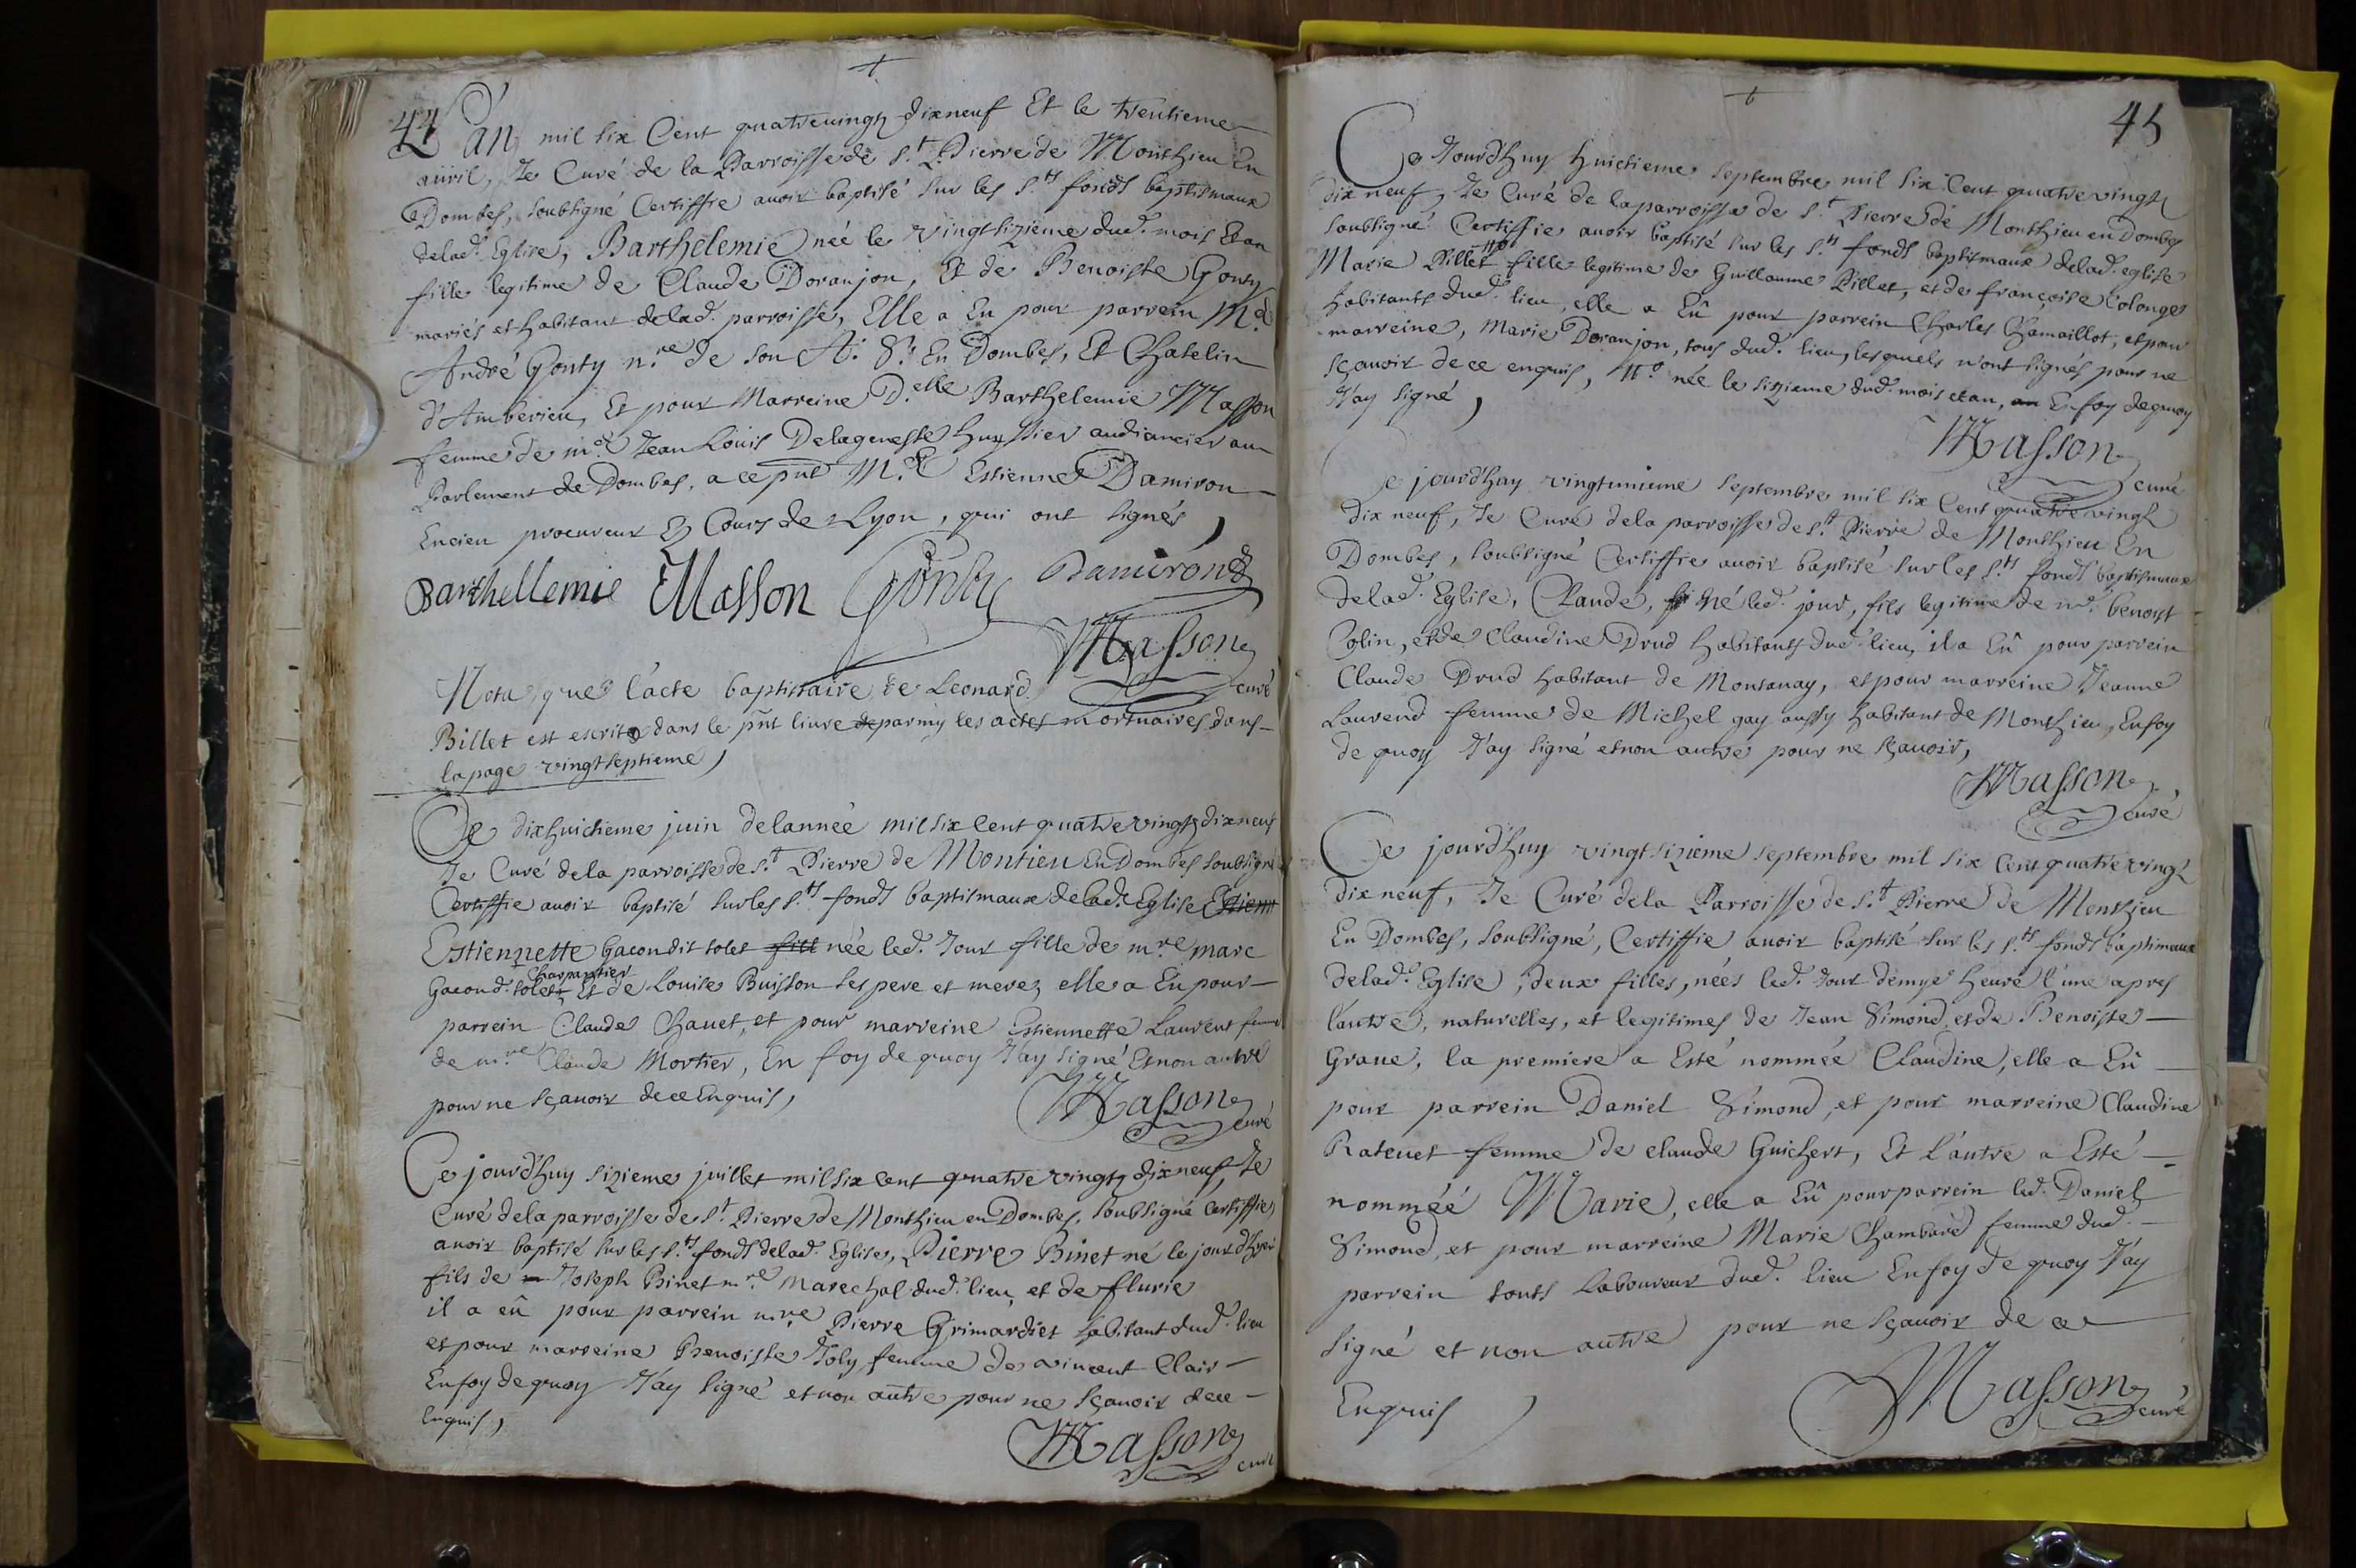 +
44 L'an mil six Cent quatrevingtz dixneuf Et le trentieme
auril, Je Curé de la Parroisse de S.t Pierre de Monthieu En
Dombes, soubsigné Certiffie auoir baptisé sur les S.ts fonds baptismaux
delad. Eglise, Barthelemie née le vingtsizieme dud. mois Et an
fille legitime de Claude Doranjon, Et de Benoiste Gonty
mariés et habitant delad. parroisse, Elle a Eu pour parrein M.e
André Gonty n.re de son A. S. En Dombes, Et Chatelin
d'Amberieu, Et pour Marreine D.elle Barthelemie Masson
femme de m.e Jean Loüis Delagenesse huissier audiancier au
Parlement de Dombes, a ce pnt M.e Estienne Damiron
Encien procureur Es Cours de Lyon, qui ont signés,
Barthellemie Masson Gonty Damiron
Masson
curé
Nota que l'acte baptistaire de Leonard
Billet est escrit dans le pnt liure de parmy les actes mortuaires dans
la page vingtseptieme,
Ce dixhuictieme juin delannée mil six Cent quatrevingtz dixneuf
Je Curé dela parroisse de S.t Pierre de Montieu En Dombes soubsigné
Certiffie auoir baptisé sur les S.ts fonds baptismaux de lad. Eglise Estienn
Estiennette Gacon dit tolet fill née led. Jour fille de m.re marc
Charpantier
Gacon d. tolet, Et de Louise Buisson ses pere et mere, elle a Eu pour
parrein Claude Chauet, et pour marreine Estiennette Laurent femme
de m.re Claude Mortier, En foy de quoy J'ay signé Et non autre
pour ne sçauoir de ce Enquis,
Masson
curé
Ce jourd'huy sizieme juillet mil six cent quatre vingtz dixneuf, Je
Curé dela parroisse de S.t Pierre de Monthieu en Dombes, soubsigné certiffie
auoir baptisé sur les S.ts fonds delad. Eglise, Pierre Binet né le jour d'hyer
fils de Joseph Binet m.re Marechal dud. lieu, et de flurie
il a eû pour parrein m.re Pierre Grimardiet habitant dud. lieu
et pour marreine Benoiste Joly femme de vincent Clair
En foy de quoy J'ay signé et non autre pour ne sçauoir de ce
Enquis,
Masson
curé
+
45
Ce Jourd'huy huictieme septembre mil six Cent quatre vingtz
dix neuf, Je Curé de la parroisse de S.t Pierre de Monthieu en Dombes
soubsigné Certiffie auoir baptisé sur les S.ts fonds baptismaux delad. eglise
Marie Pillet fille legitime de Guillaume Pillet, et de françoise Colonge
habitants dud. lieu, elle a Eû pour parrein Charles Chamaillot, et pour
marreine, Marie Doranjon, tous dud. lieu, lesquels n'ont signés pour ne
sçauoir de ce enquis, née le sizieme dud. mois et an, an En foy dequoy
J'ay signé,
Masson
curé
Ce jourd'huy vingtunieme septembre mil six Cent quatre vingtz
dix neuf, Je Curé dela parroisse de S.t Pierre de Monthieu En
Dombes, soubsigné Certiffie auoir baptisé sur les S.ts fonds baptismaux
delad. Eglise, Claude, né led. jour, fils legitime de m.e benoist
Colin, et de Claudine Drud habitants dud. lieu, il a Eû pour parrein
Claude Drud habitant de Montanay, et pour marreine Jeanne
Laurend femme de Michel gay aussy habitant de Monthieu, En foy
de quoy J'ay signé et non autre pour ne sçauoir,
Masson
curé
Ce jourd'huy vingtsizieme septembre mil six Cent quatre vingtz
dix neuf, Je Curé dela Parroisse de S.t Pierre de Monthieu
En Dombes, soubsigné, Certiffie auoir baptisé sur les S.ts fonds baptimaux
delad. Eglise, deux filles, nées led. Jour demye heure l'une apres
l'autre, naturelles, et legitimes de Jean Simond, et de Benoiste
Graue, la premiere a Esté nommée Claudine, elle a Eû
pour parrein Daniel Simond, et pour marreine Claudine
Ratenet femme de claude Guichert, Et l'autre a Esté
nommée Marie, elle a Eû pour parrein led. Daniel
Simond, et pour marreine Marie Chambard femme dud.
parrein touts laboureur dud. lieu En foy de quoy J'ay
signé et non autre pour ne sçauoir de ce
Enquis,
Masson
curé